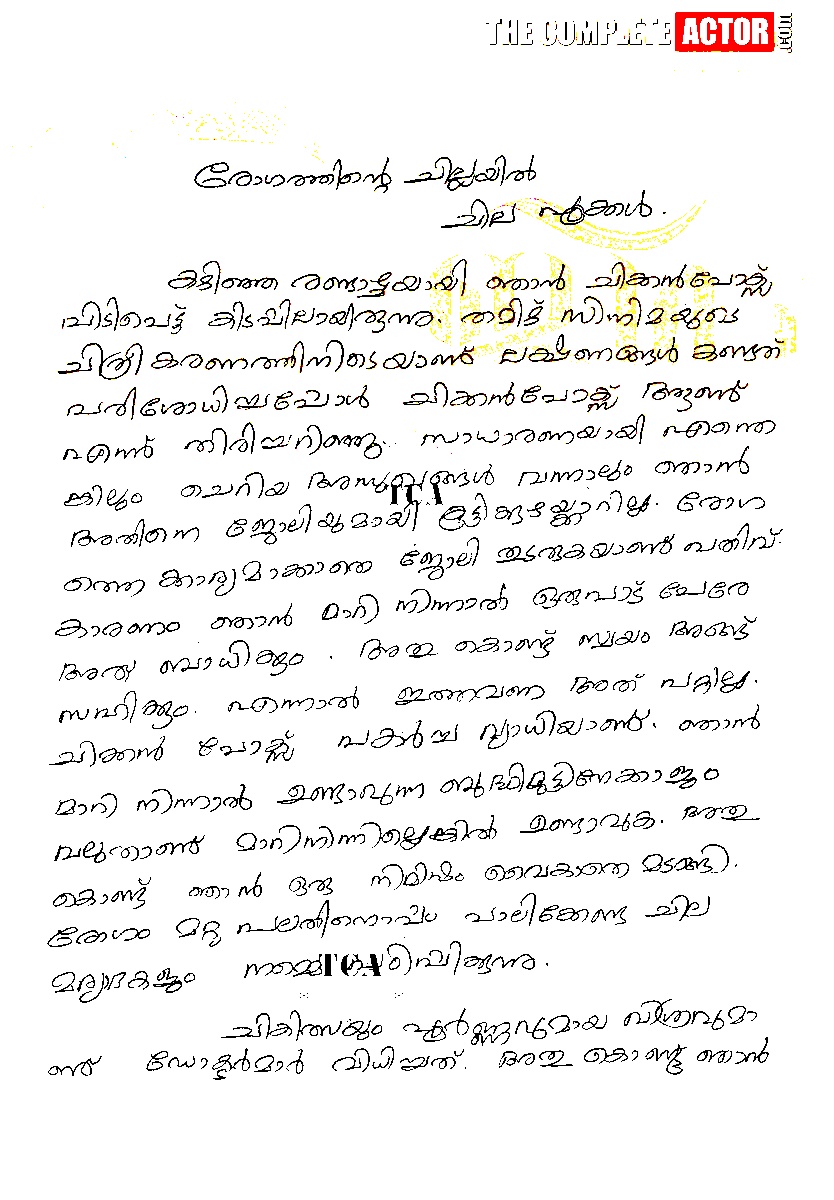 THE COMPLETE ACTOR .COM
രോഗത്തിന്റെ ചില്ലയിൽ
ചില പൂക്കൾ.
കഴിഞ്ഞ രണ്ടാഴ്ചയായി ഞാൻ ചിക്കൻപോക്സ്
പിടിപെട്ട് കിടപ്പിലായിരുന്നു. തമിഴ് സിനിമയുടെ
ചിത്രീകരണത്തിനിടെയാണ് ലക്ഷണങ്ങൾ കണ്ടത്
പരിശോധിച്ചപ്പോൾ ചിക്കൻപോക്സ് ആണ്
എന്ന് തിരിച്ചറിഞ്ഞു. സാധാരണയായി എന്തെ
ങ്കിലും ചെറിയ അസുഖങ്ങൾ വന്നാലും ഞാൻ
TCA
അതിനെ ജോലിയുമായി കൂട്ടിക്കുഴയ്ക്കാറില്ല. രോഗ
ത്തെ കാര്യമാക്കാതെ ജോലി തുടരുകയാണ് പതിവ്.
കാരണം ഞാൻ മാറി നിന്നാൽ ഒരുപാട് പേരേ
അത് ബാധിക്കും. അതു കൊണ്ട് സ്വയം അങ്ങ്
സഹിക്കും. എന്നാൽ ഇത്തവണ അത് പറ്റില്ല.
ചിക്കൻ പോക്സ് പകർച്ച വ്യാധിയാണ്. ഞാൻ
മാറി നിന്നാൽ ഉണ്ടാവുന്ന ബുദ്ധിമുട്ടിനേക്കാളും
വലുതാണ് മാറിനിന്നില്ലെങ്കിൽ ഉണ്ടാവുക. അതു
കൊണ്ട് ഞാൻ ഒരു നിമിഷം വൈകാതെ മടങ്ങി.
രോഗം മറ്റു പലതിനൊപ്പം പാലിക്കേണ്ട ചില
മര്യാദകളും നമ്മെ പഠിപ്പിക്കുന്നു.
TCA
ചികിത്സയും പൂർണ്ണവുമായ വിശ്രമവുമാ
ണ് ഡോക്ടർമാർ വിധിച്ചത്. അതു കൊണ്ട് ഞാൻ